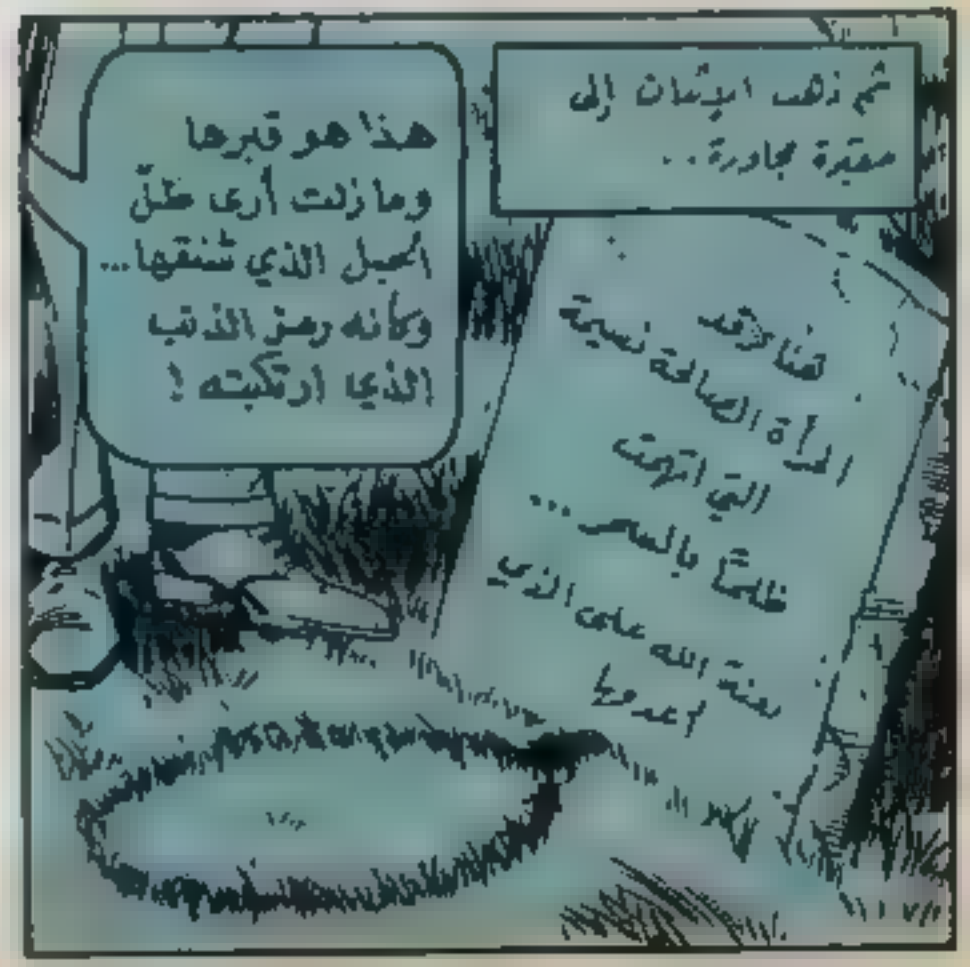 ثم ذهب الإثنان إلى
مقبرة مجاورة..
هذا هو قبرها
وما زلت أرى ظلّ
الحبل الذي شنقها...
وكأنه رمز الذنب
الذي ارتكبته !
هنا ترقد
المرأة الصالحة نسيمة
التي اتهمت
ظلمًا بالسحر...
لعنة الله على الذي
أعدموها